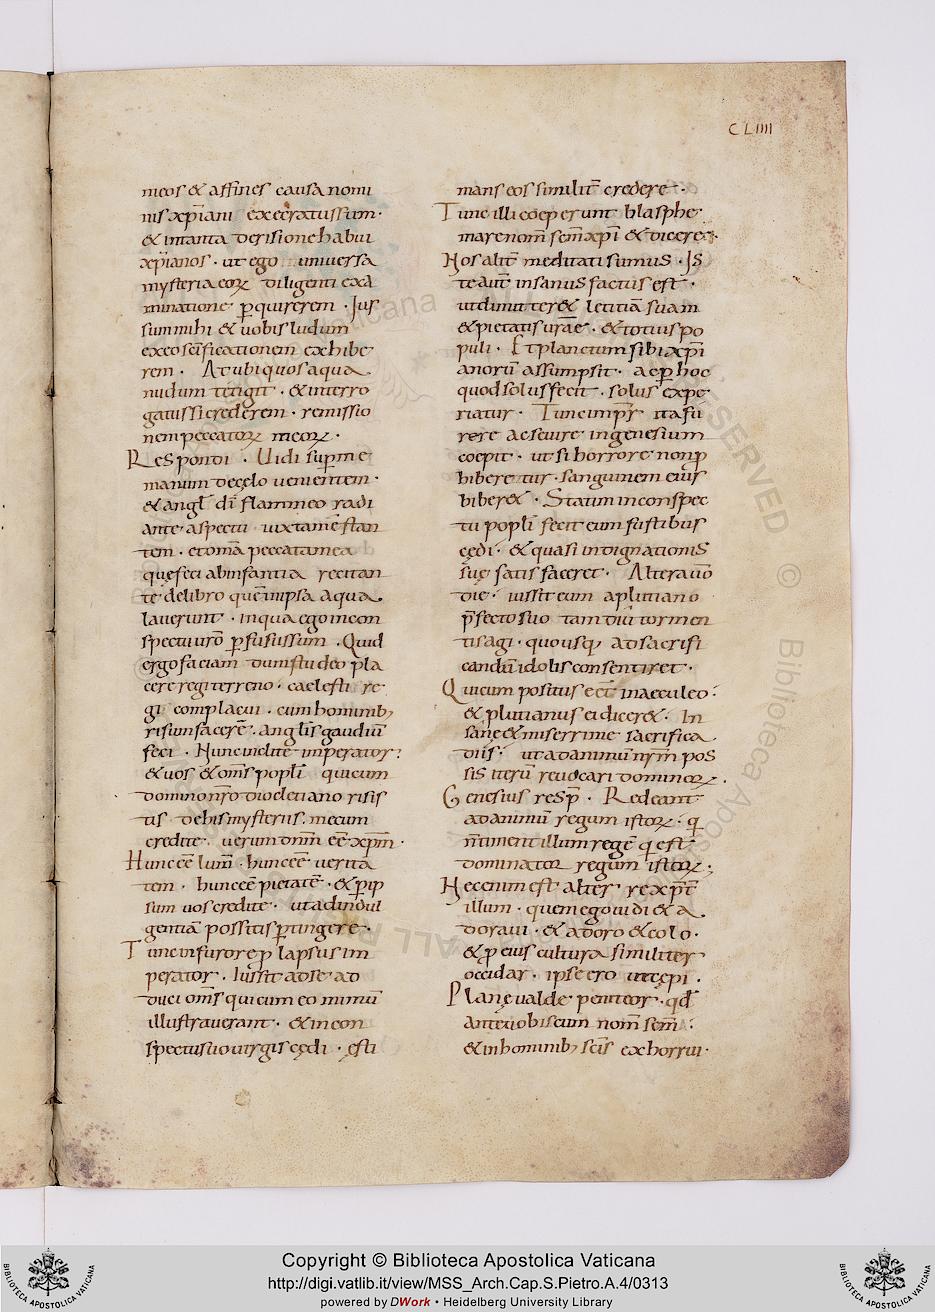 CLIIII
nicos & affines causa nomi
nis xp̄iani execratus sum·
& in tanta derisione habui
xp̄ianos · ut ego universa
mysteria eoꝝ diligenti exa
minatione ꝑquirerem · Jus
sum mihi & vobis ludum
ex eo sc̄ificationem exhibe
rem · At ubi quos aqua
nudum tetigit · & interro
gatus si crederem · remissio
nem peccatoꝝ meoꝝ ·
Respondi · Vidi sup̄ me
manum de cęlo venientem ·
& angl̄ dī flammeo radi
ante aspectu iuxta me stan
tem · et om̄a peccata mea
quę feci ab infantia recitan
te de libro quē in ipsa aqua
laverunt · in qua ego in con
spectu vr̄o ꝑfusus sum · Quid
ergo faciam dum studeo pla
cere regi terreno · caelesti re
gi complacui · cum hominib;
risum facerē · anglis gaudiū
feci · Hunc inclite imperator
& vos & om̄s popl̄i qui cum
domno nr̄o diocletiano risis
tis de his mysteriis · mecum
credite · verum dnm̄ eē xp̄m ·
Hunc eē lum̄ · hunc eē verita
tem · hunc eē pietatē · & ꝑ ip
sum vos credite · ut ad indul
gentiā possitis ꝑtingere ·
Tunc in furore p̄ lapsus im
perator · Iussit ad se ad
duci om̄s qui cum eo mimū
illustraverant · & in con
spectu suo virgis cędi · ęsti
mans eos similit̄ credere ·
Tunc illi coeperunt blasphe
mare nom̄ sem̄ xp̄i & dicere ·
Nos alit̄ meditati sumus · Js
te aut̄ insanus factus est ·
ut dimitter& letitiā suam
& pietatis vr̄ae · & totius po
puli · Et planctum sibi xp̄i
anorū assumpsit · ac ꝑ hoc
quod solus fecit · solus expe
riatur · Tunc impr̄ ita fu
rere ac sevire in genesium
coepit · ut si horrore non p̄
hiberetur · sanguinem eius
biber& · Statum in conspec
tu popl̄i fecit eum fustibus
cędi · & quasi indignationis
suę satis faceret · Altera v̄o
die · iussit eum a plutiano
p̄fecto suo tam diū tormen
tis agi · quo usq; ad sacrifi
candū idolis consentiret ·
Qui cum positus eēt in aeculeo ·
& plutianus ei dicer& · In
sane & miserrime sacrifica
diis · ut ad animū nr̄m pos
sis iterū revocari dominoꝝ ·
Genesius resp̄ · Redeant
ad animū regum istoꝝ · q̄
n̄ timent illum regē q̄ est
dominator regum istoꝝ ;
Hec enim est alter rex p̄t̄
illum · quem ego vidi & a
doravi · & adoro & colo ·
& p̄ eius cultura similiter
occidar · ipse ero ut cępi ·
Plane valde peniteor · qd̄
ante vobiscum nom̄ sem̄ ·
& in hominib; scīs exhorrui ·
Copyright © Biblioteca Apostolica Vaticana
http://digi.vatlib.it/view/MSS_Arch.Cap.S.Pietro.A.4/0313
powered by DWork • Heidelberg University Library